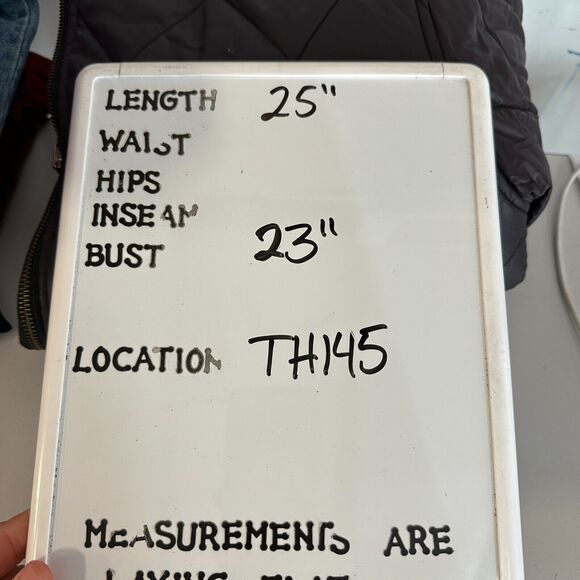 LENGTH 25"
WAIST
HIPS
INSEAM
BUST 23"
LOCATION TH145
MEASUREMENTS ARE
LAYING FLAT